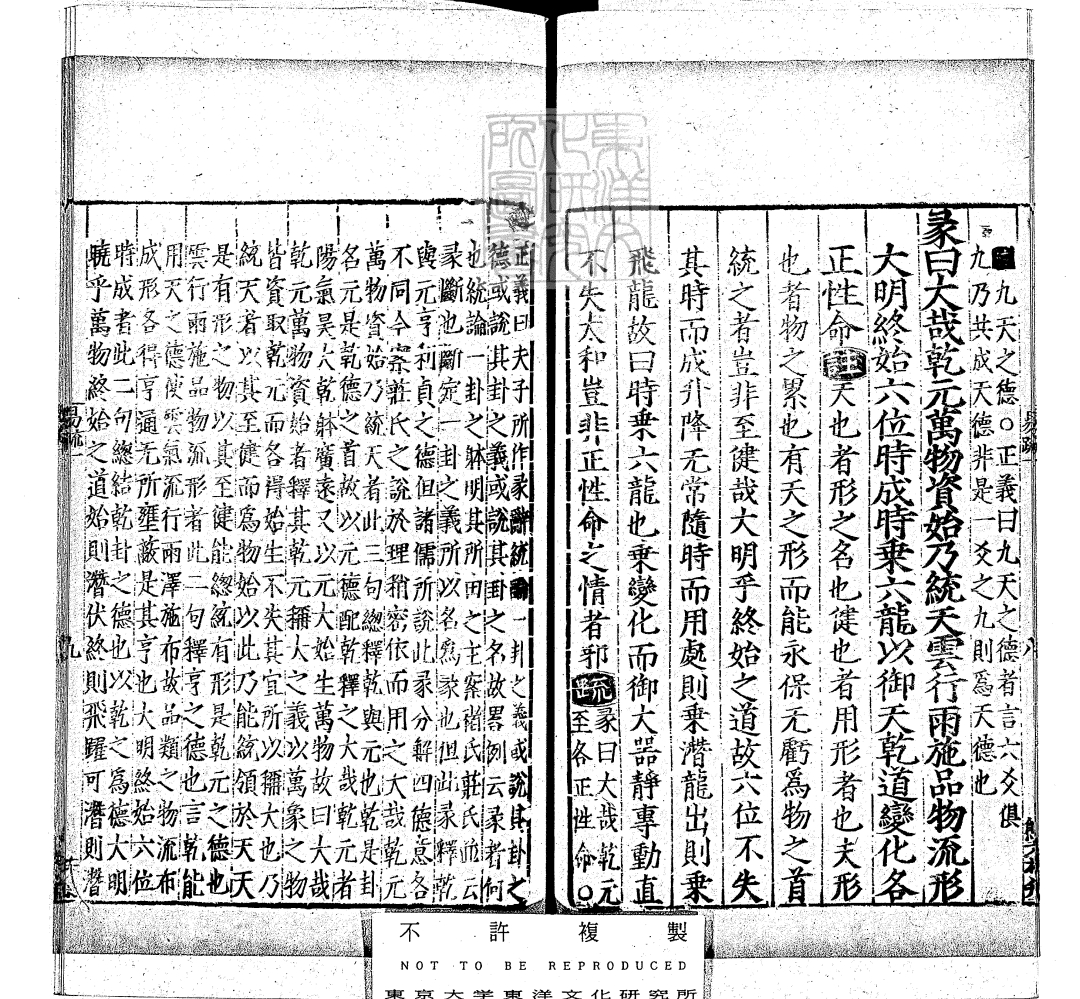 疏九天之德○正義曰九天之德者言六爻俱
九乃共成天德非是一爻之九則爲天德也
彖曰大哉乾元萬物資始乃統天雲行雨施品物流形
大明終始六位時成時乗六龍以御天乾道變化各
正性命注天也者形之名也健也者用形者也夫形
也者物之累也有天之形而能永保无虧爲物之首
統之者豈非至健哉大明乎終始之道故六位不失
其時而成升降无常隨時而用處則乗潛龍出則乗
飛龍故曰時乗六龍也乗變化而御大器靜專動直
不失太和豈非正性命之情者邪疏彖曰大哉乾元
至各正性命○
正義曰夫子所作彖辭統論一卦之義或說其卦之
德或說其卦之義或說其卦之名故畧例云彖者何
也統論一卦之躰明其所由之主案褚氏莊氏並云
彖斷也斷定一卦之義所以名爲彖也但此彖釋乾
與元亨利貞之德但諸儒所說此彖分解四德意各
不同今案莊氏之說於理稍密依而用之大哉乾元
萬物資始乃統天者此三句緫釋乾與元也乾是卦
名元是乾德之首故以元德配乾釋之大哉乾元者
陽氣昊大乾躰廣遠又以元大始生萬物故曰大哉
乾元萬物資始者釋其乾元稱大之義以萬象之物
皆資取乾元而各得始生不失其宜所以稱大也乃
統天者以其至健而爲物始以此乃能統領於天天
是有形之物以其至健能緫統有形是乾元之德也
雲行雨施品物流形者此二句釋亨之德也言乾能
用天之德使雲氣流行雨澤施布故品類之物流布
成形各得亨通无所壅蔽是其亨也大明終始六位
時成者此二句緫結乾卦之德也以乾之爲德大明
曉乎萬物終始之道始則潛伏終則飛躍可潛則潛
易疏一
八
易疏一
九
不許複製
NOT TO BE REPRODUCED
東京大学東洋文化研究所